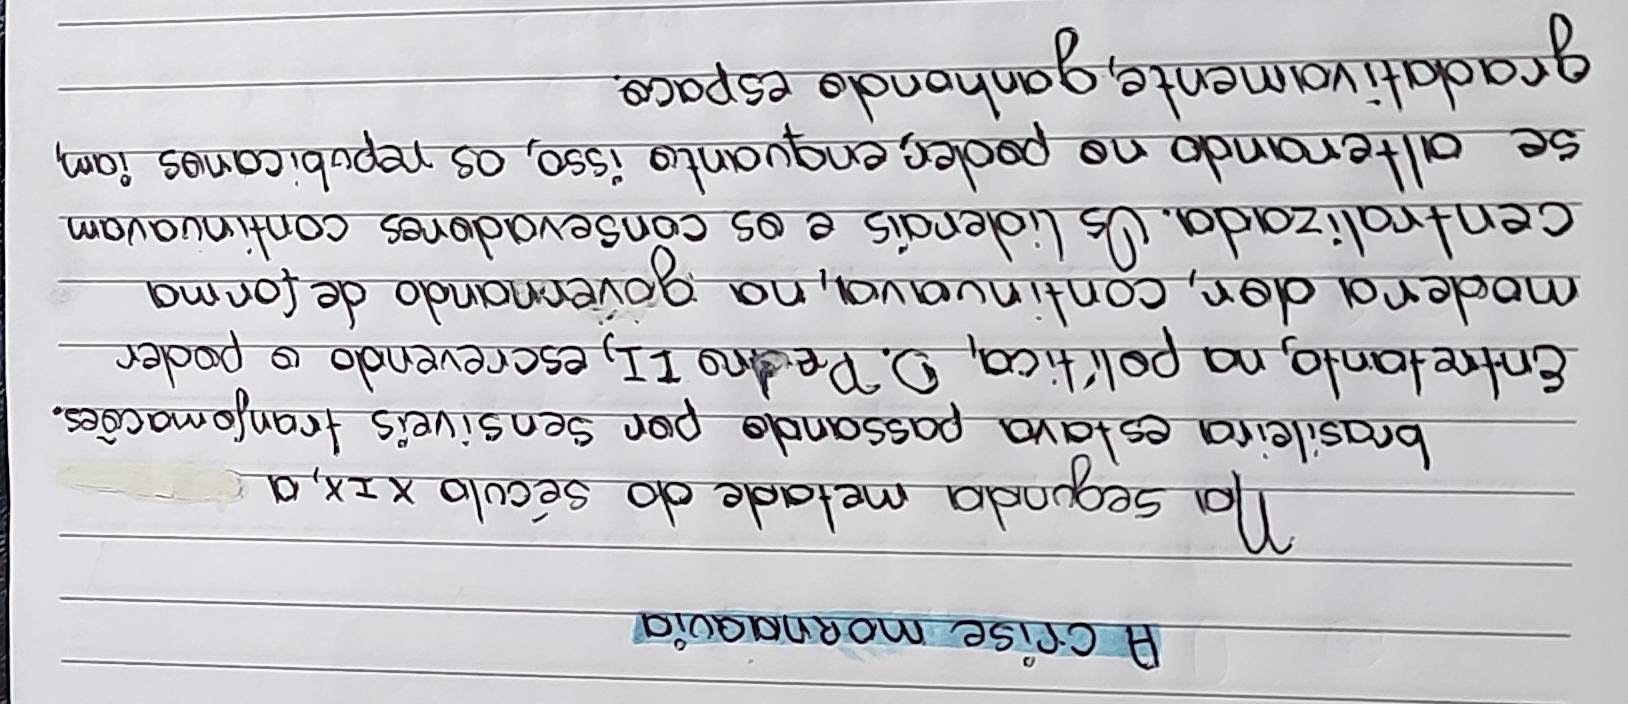 A crise mornaquia
Na segunda metade do século XIX, a
brasileira estava passando por sensiveis tranfomações.
Entretanto, na política, D. Pedro II, escrevendo o poder
modera dor, continuava, na governando de forma
centralizada. Os liderais e os consevadores continuavam
se alterando no poder, enquanto isso, os repubicanos iam,
gradativamente, ganhando espaço.